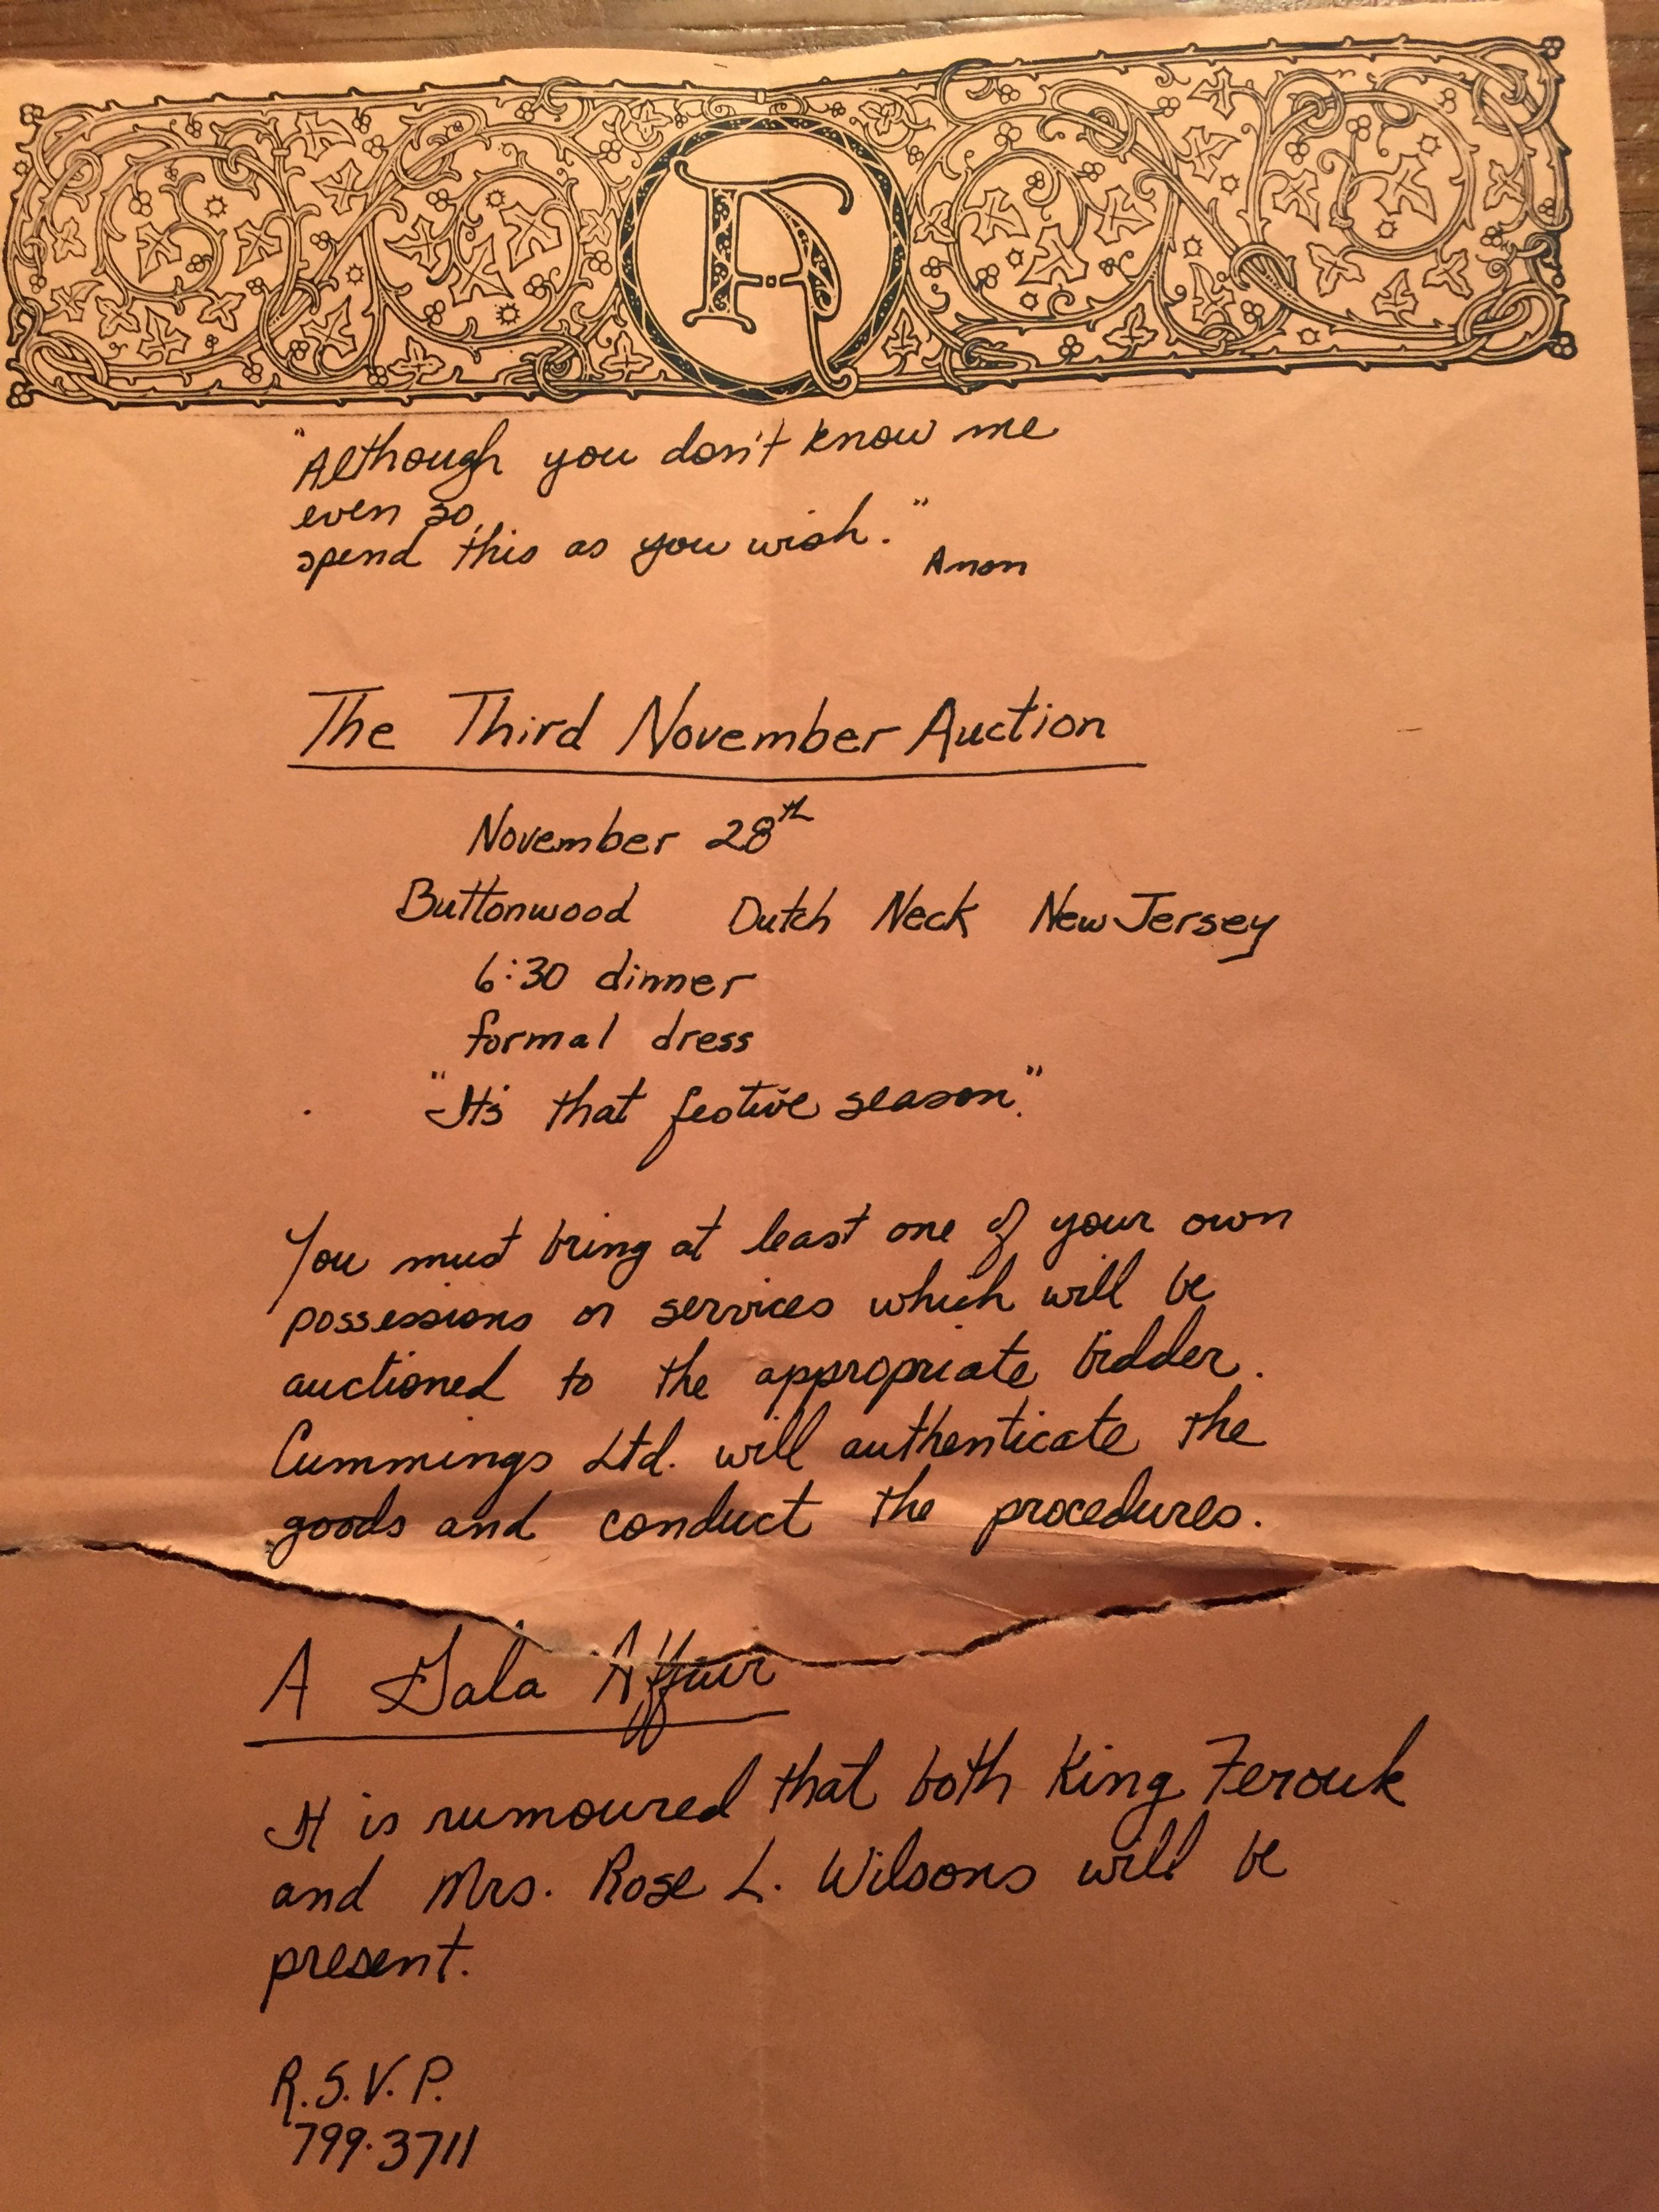 A
"Although you don't know me
even so,
spend this as you wish."
Anon
The Third November Auction
November 28th
Buttonwood Dutch Neck New Jersey
6:30 dinner
formal dress
"It's that festive season."
You must bring at least one of your own
possessions or services which will be
auctioned to the appropriate bidder.
Cummings Ltd. will authenticate the
goods and conduct the procedures.
A Gala Affair
It is rumoured that both King Ferouk
and Mrs. Rose L. Wilsons will be
present.
R.S.V.P.
799.3711